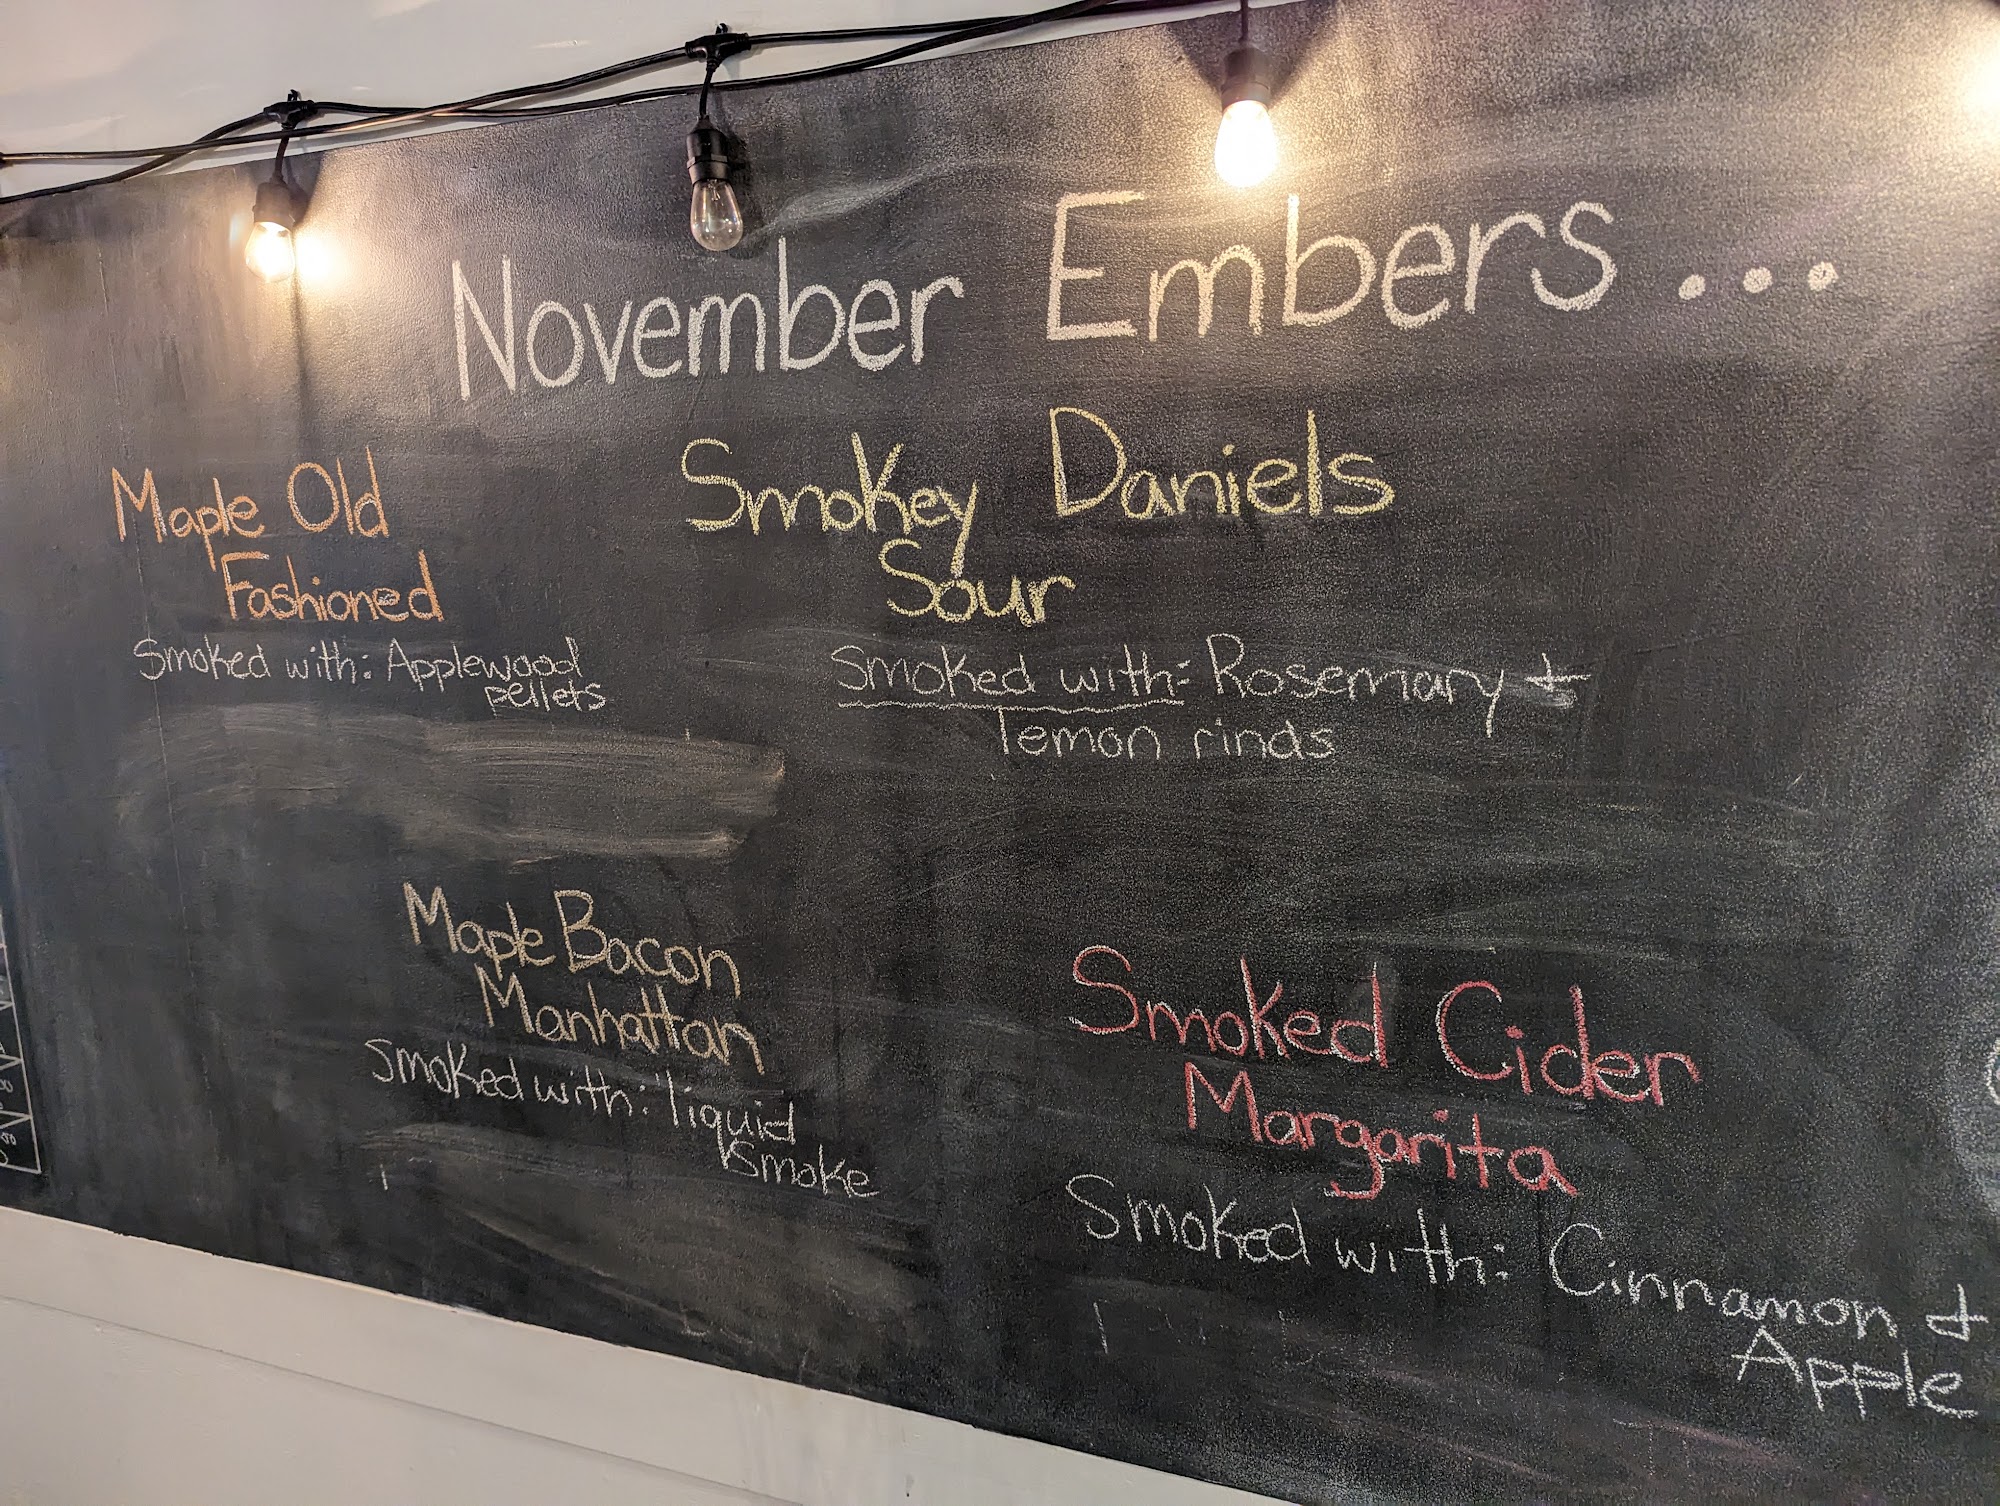 November Embers...
Maple Old
Fashioned
Smoked with: Applewood
pellets
Smokey Daniels
Sour
Smoked with: Rosemary &
lemon rinds
Maple Bacon
Manhattan
Smoked with: liquid
smoke
Smoked Cider
Margarita
Smoked with: Cinnamon &
Apple